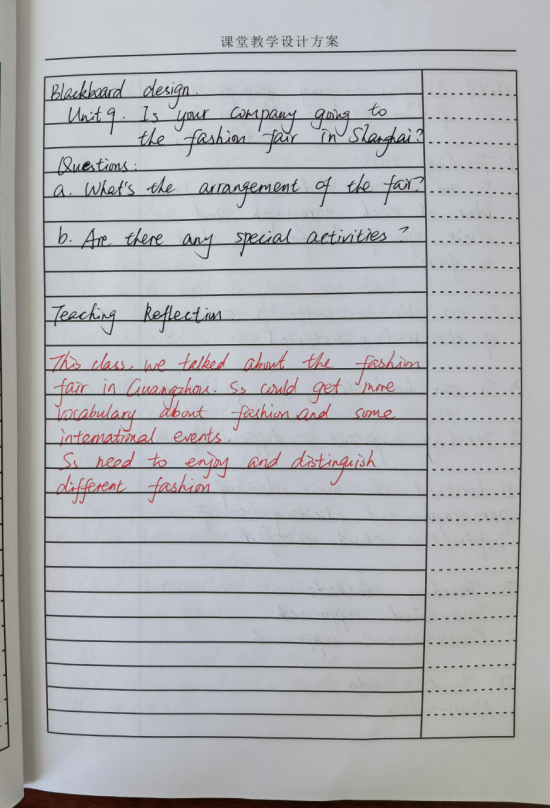 课堂教学设计方案
Blackboard design.
Unit 9. Is your company going to
the fashion fair in Shanghai?
Questions:
a. What's the arrangement of the fair?
b. Are there any special activities?
Teaching Reflection
This class, we talked about the fashion
fair in Guangzhou. Ss could get more
vocabulary about fashion and some
international events.
Ss need to enjoy and distinguish
different fashion